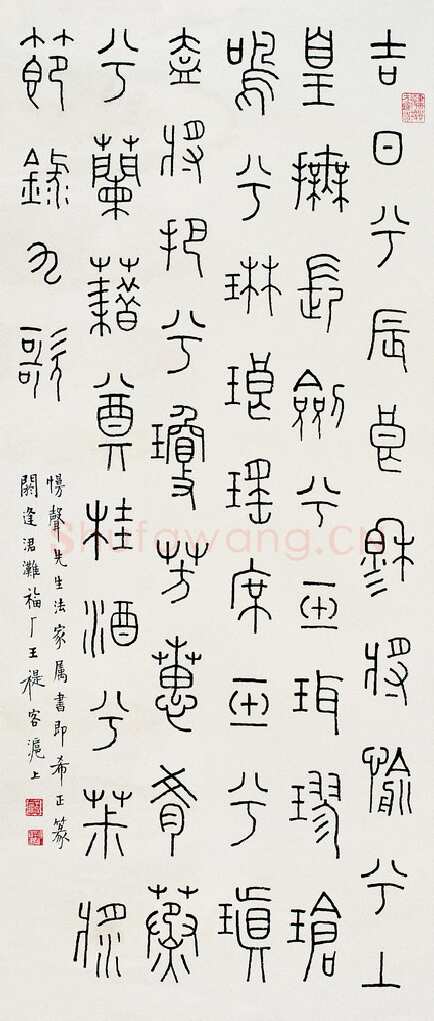 吉日兮辰良穆將愉兮上
皇撫長劍兮玉珥璆瑲
鳴兮琳琅瑤席玉兮瑱
盍將把兮瓊芳蕙肴蒸
兮蘭藉奠桂酒兮茮漿
節錄九歌
聲先生法家属書即希正篆
閼逢涒灘福厂王禔客滬上
Shufawang.cn